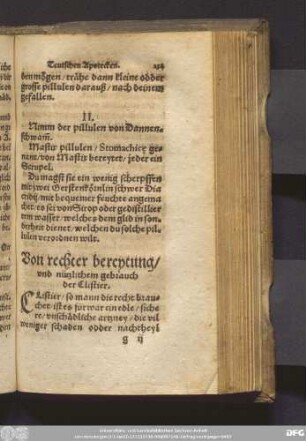 Teutschen Apotecken. 154
benmögen / trähe dann kleine odder
grosse pillulen darauß / nach deinem
gefallen.
II.
Nimm der pillulen von Dannen-
schwam̃.
Mastix pillulen / Stomachice ge-
nent / von Mastix bereytet / jeder ein
Scrupel.
Du magst sie ein wenig scherpffen
mit zwei Gerstenkörnlin schwer Dia
gridij / mit bequemer feuchte angema
chet / es sei von Sirop oder gedistillier
tem wasser / welches dem glid in son-
derheit dienet / welchen du solche pil-
lulen verordnen wilt.
Von rechter bereytung /
vnd nützlichem gebrauch
der Clistier.
Clistier / so mann die recht brau-
chet / ist es fürwar ein edle / siche
re / vnschädliche artzney / die vil
weniger schaden odder nachtheyl
g ij
DFG